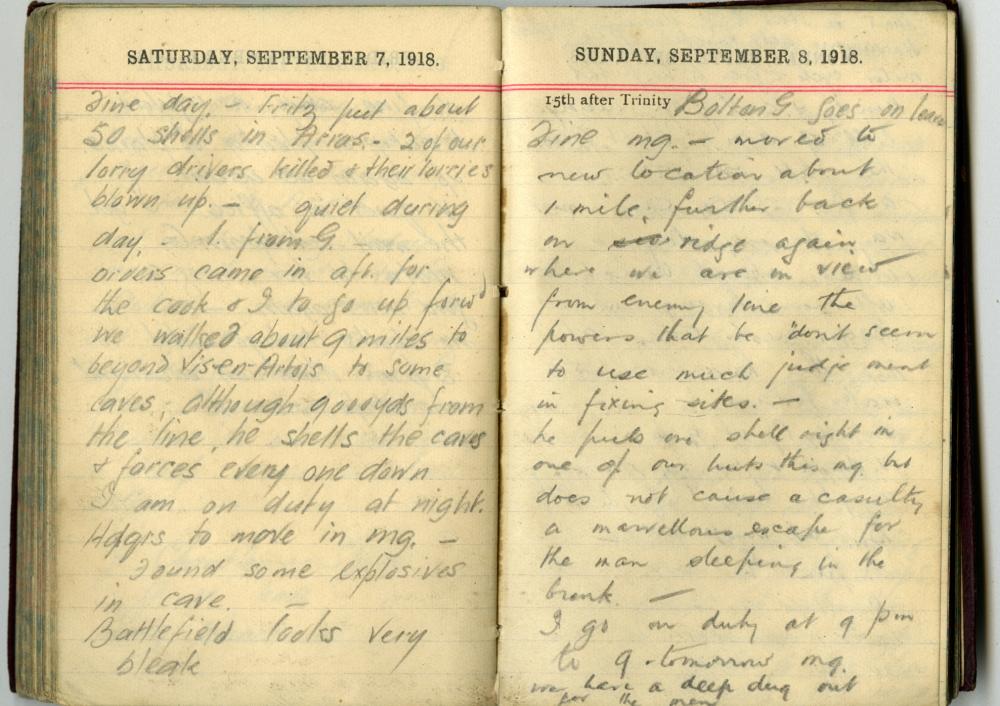 SATURDAY, SEPTEMBER 7, 1918.
Fine day. - Fritz put about
50 shells in Arras. - 2 of our
lorry drivers killed & their lorries
blown up. - quiet during
day. - 1. from G. -
orders came in aft. for
the cook & I to go up forwd
we walked about 9 miles to
beyond Vis-en-Artois to some
caves, although 9000yds from
the line, he shells the caves
& forces every one down
I am on duty at night.
Hdqrs to move in mg. -
Found some explosives
in cave. -
Battlefield looks very
bleak
SUNDAY, SEPTEMBER 8, 1918.
15th after Trinity Bolton G. goes on leave
Fine mg. - moved to
new location about
1 mile, further back
on ridge again
where we are in view
from enemy line the
powers that be "don't seem
to use much judge ment
in fixing sites. -
he puts one shell right in
one of our huts this mg. but
does not cause a casulty
a marvellous escape for
the man sleeping in the
bunk. -
I go on duty at 9 pm
to 9 - tomorrow mg.
we have a deep dug out
for the men